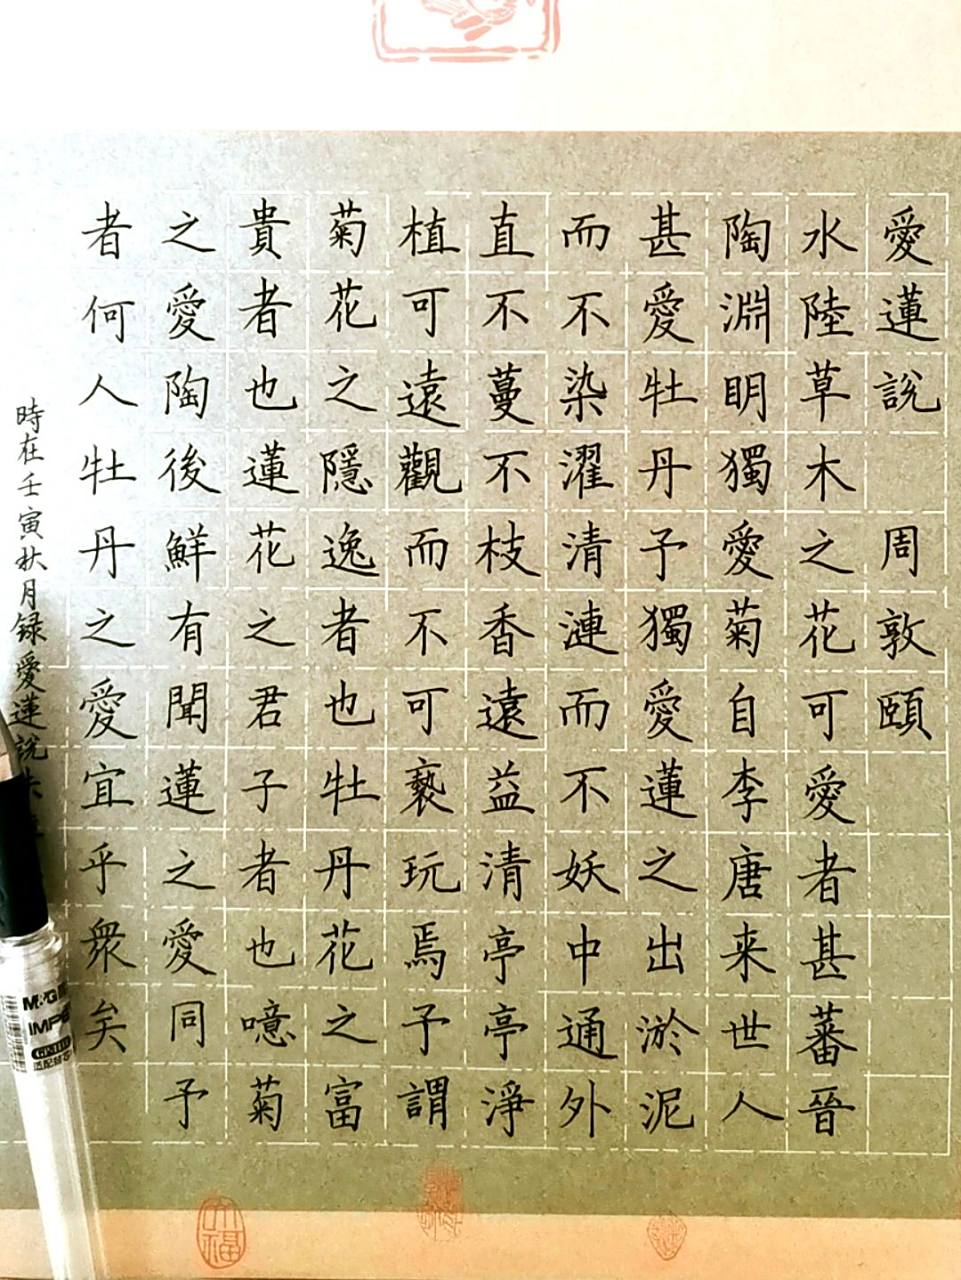 愛蓮說 周敦頤
水陸草木之花可愛者甚蕃晉
陶淵明獨愛菊自李唐来世人
甚愛牡丹予獨愛蓮之出淤泥
而不染濯清漣而不妖中通外
直不蔓不枝香遠益清亭亭淨
植可遠觀而不可褻玩焉予謂
菊花之隱逸者也牡丹花之富
貴者也蓮花之君子者也噫菊
之愛陶後鮮有聞蓮之愛同予
者何人牡丹之愛宜乎衆矣
時在壬寅秋月録愛蓮說
M&G